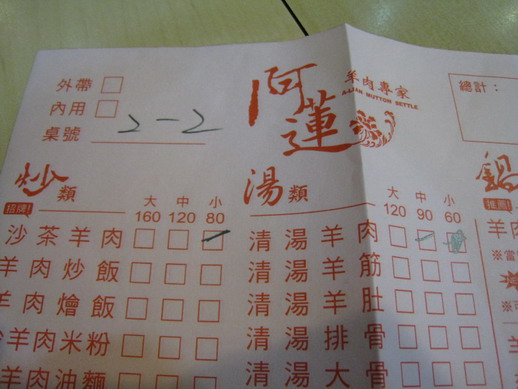 外帶
內用
桌號 2-2
阿蓮
羊肉專家
A-LIAN MUTTON SETTLE
總計：
炒類
招牌!
大 中 小
160 120 80
沙茶羊肉
羊肉炒飯
羊肉燴飯
羊肉米粉
羊肉油麵
湯類
大 中 小
120 90 60
清湯羊肉
清湯羊筋
清湯羊肚
清湯排骨
清湯大骨
鍋
推薦!
羊